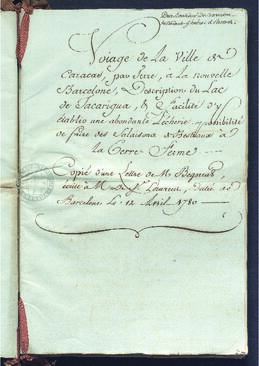 Voiage de La Ville de
Caracas, par Terre, à La nouvelle
Barcelone, Description du Lac
de Tacarigua, & Facilité d'y
établir une abondante Pêcherie, possibilité
de faire des Salaisons de Bestiaux à
la Terre Ferme
Copie d'une Lettre de Mr
écrite à M. De datée de
Barcelone Le 12 Avril 1780